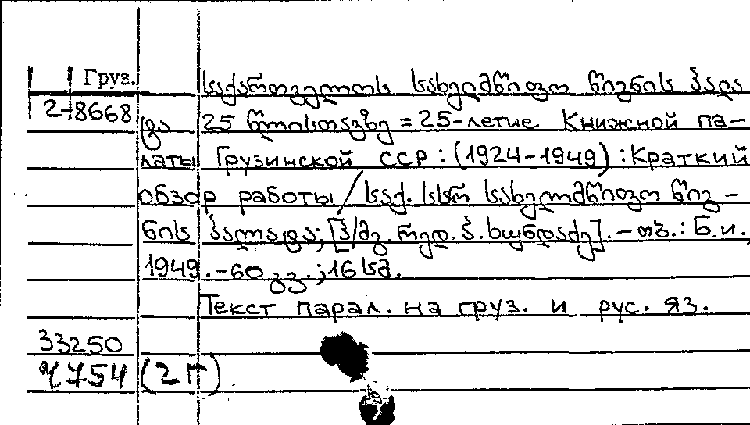 Груз.
საქართველოს სახელმწიფო წიგნის პალა
2-8668
ტა 25 წლისთავზე = 25-летие Книжной па-
латы Грузинской ССР : (1924-1949) : Краткий
обзор работы / საქ. სსრ სახელმწიფო წიგ-
ნის პალატა; [პ/მგ. რედ. პ. ხუნდაძე]. – თბ. : Б.и.,
1949. -60 გვ. ; 16 სმ.
Текст парал. на груз. и рус. яз.
33250
4754 (2г)